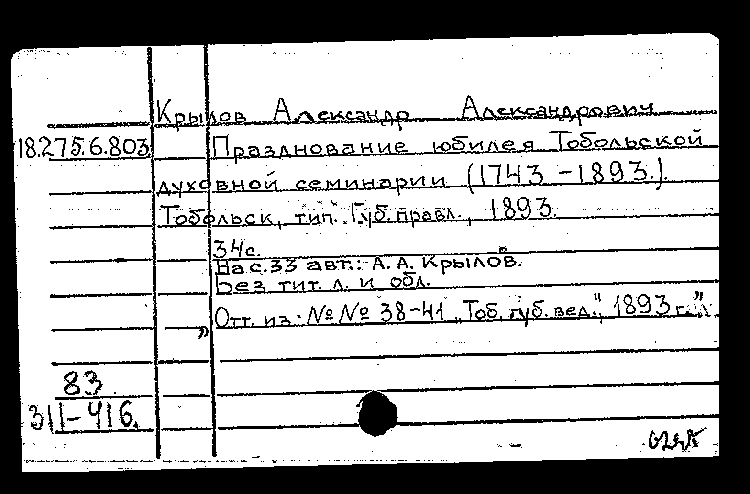 Крылов Александр Александрович
18.275.6.803 Празднование юбилея Тобольской
духовной семинарии (1743-1893.).
Тобольск, тип. Губ. правл., 1893.
34с.
На с.33 авт.: А. А. Крылов.
Без тит. л. и обл.
" Отт. из: №№ 38-41 "Тоб. губ. вед.", 1893 г."
83
311-416.